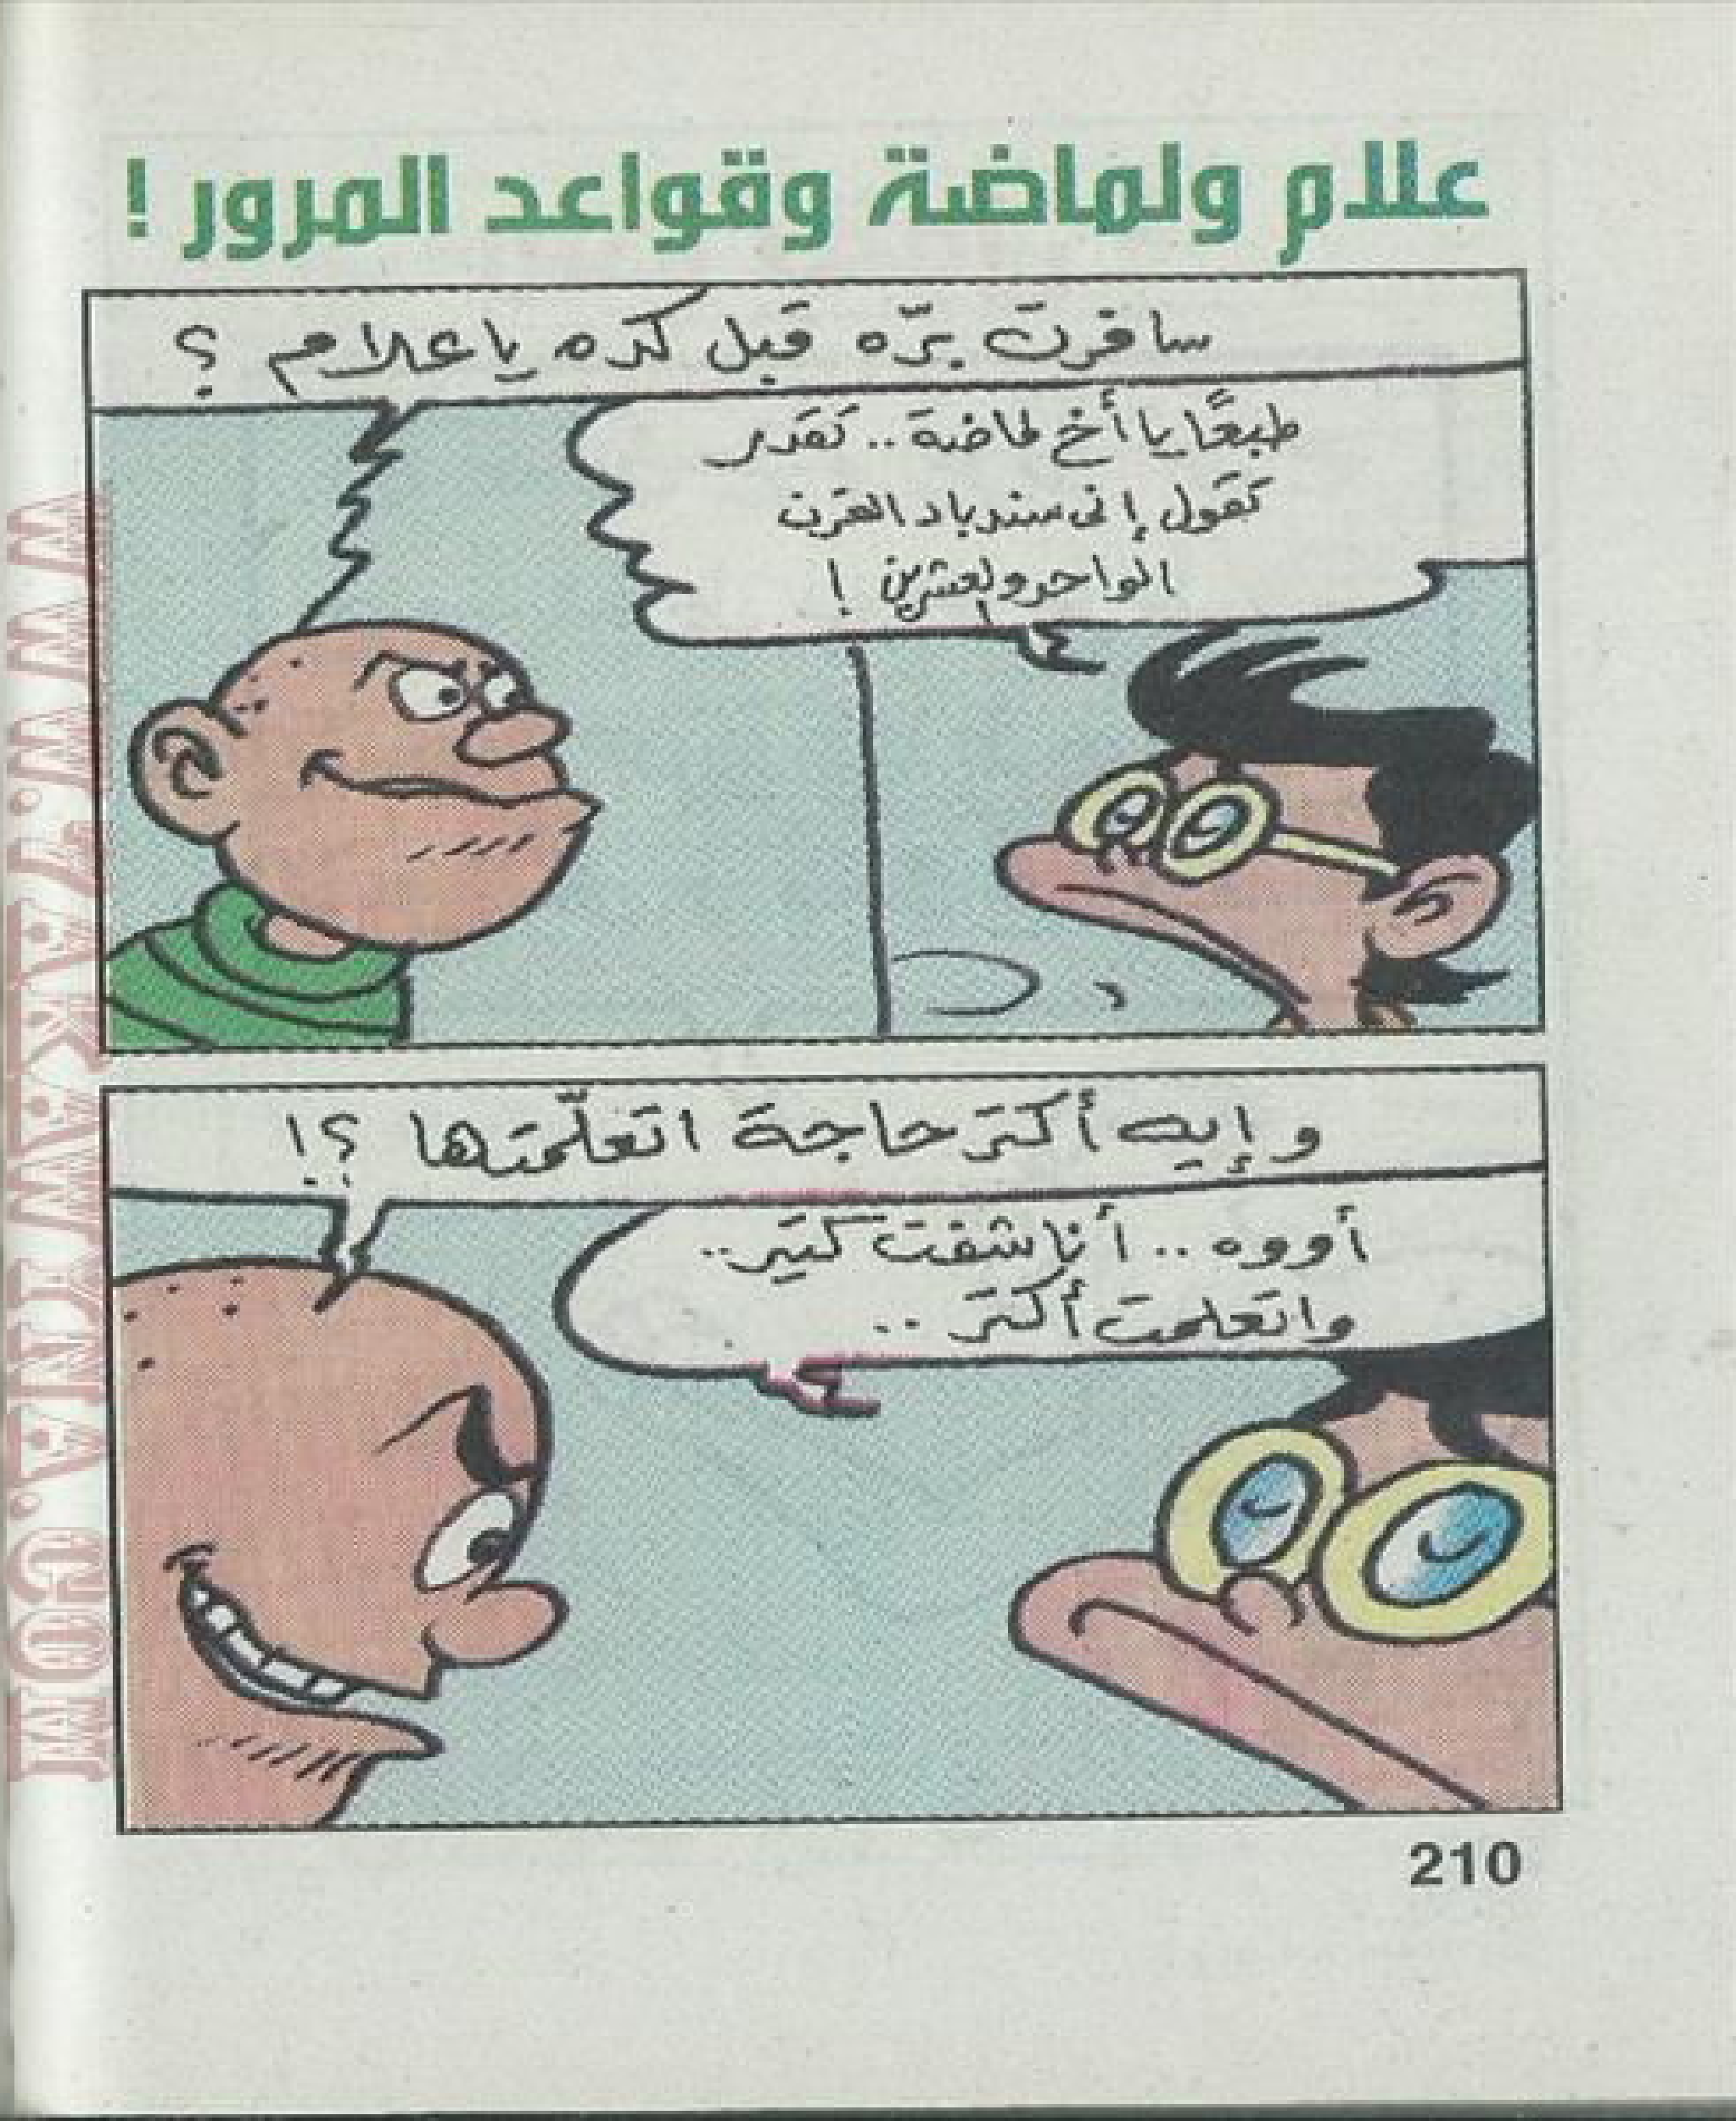 علام ولماضة وقواعد المرور !
سافرت برّه قبل كده يا علام ؟
طبعًا يا أخ لماضة .. تقدر
تقول إنى سندباد القرن
الواحد والعشرين !
وإيه أكتر حاجة اتعلّمتها ؟!
أووه .. أنا شفت كتير ..
واتعلمت أكتر ..
210
WWW.ZAKAWITNA.COM